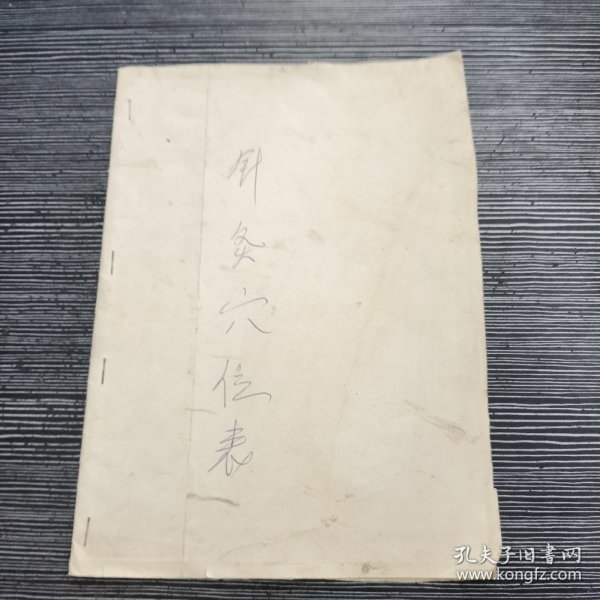 针灸穴位表
孔夫子旧書网
www.kongfz.com